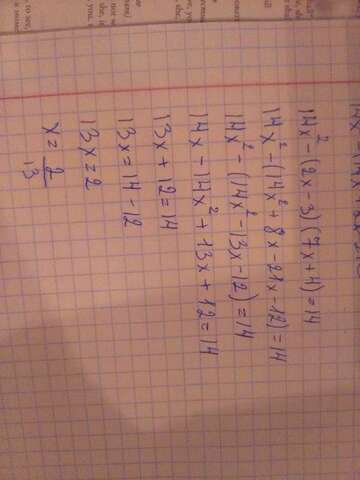 14x² - (2x - 3)(7x + 4) = 14
14x² - (14x² + 8x - 21x - 12) = 14
14x² - (14x² - 13x - 12) = 14
14x - 14x² + 13x + 12 = 14
13x + 12 = 14
13x = 14 - 12
13x = 2
x = 2/13